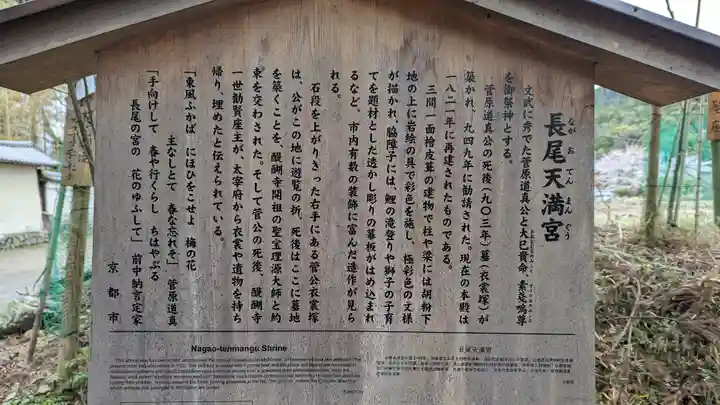 長尾天満宮
ながおてんまんぐう
文武に秀でた菅原道真公と大己貴命、素戔嗚尊
を御祭神とする。
菅原道真公の死後(九〇三年)墓(衣裳塚)が
築かれ、九四九年に勧請された。現在の本殿は
一八二一年に再建されたものである。
三間一面檜皮葺の建物で柱や梁には胡粉下
地の上に岩絵の具で彩色を施し、極彩色の文様
が描かれ、脇障子には、鯉の滝登りや獅子の子育
てを題材とした透かし彫りの幕板がはめ込まれ
るなど、市内有数の装飾に富んだ造作が見ら
れる。
石段を上がりきった右手にある菅公衣裳塚
は、公がこの地に遊覧の折、死後はここに墓地
を築くことを、醍醐寺開祖の聖宝理源大師と約
束を交わされた。そして菅公の死後、醍醐寺
一世勧賢座主が、太宰府から衣裳や遺物を持ち
帰り、埋めたと伝えられている。
「東風ふかば にほひをこせよ 梅の花
主なしとて 春な忘れそ」 菅原道真
「手向けして 春や行くらし ちはやぶる
長尾の宮の 花のゆふして」 前中納言定家
京都市
Nagao-tenmangu Shrine
長尾天満宮